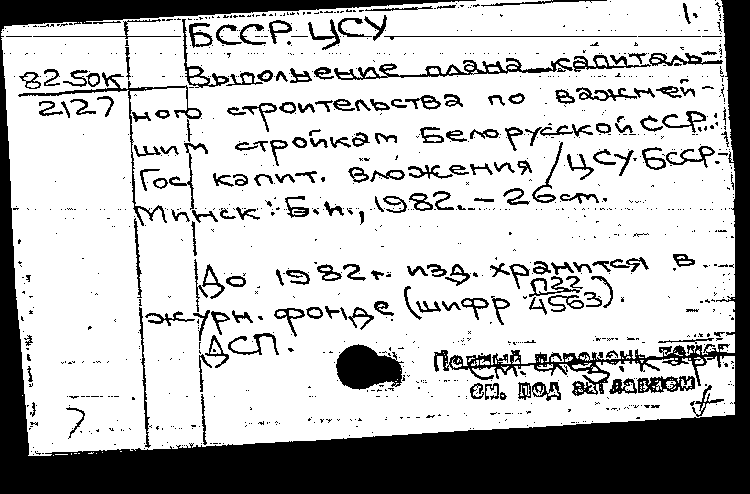 1.
БССР. ЦСУ.
82-50к
2127
Выполнение плана капиталь-
ного строительства по важней-
шим стройкам Белорусской ССР.:
Гос. капит. вложения / ЦСУ БССР.-
Минск: Б.и., 1982. - 26 ст.
До 1982 г. изд. хранится в
журн. фонде (шифр П22/4563).
ДСП.
Полный перечень томов
См. след. к-рт.
см. под заглавием